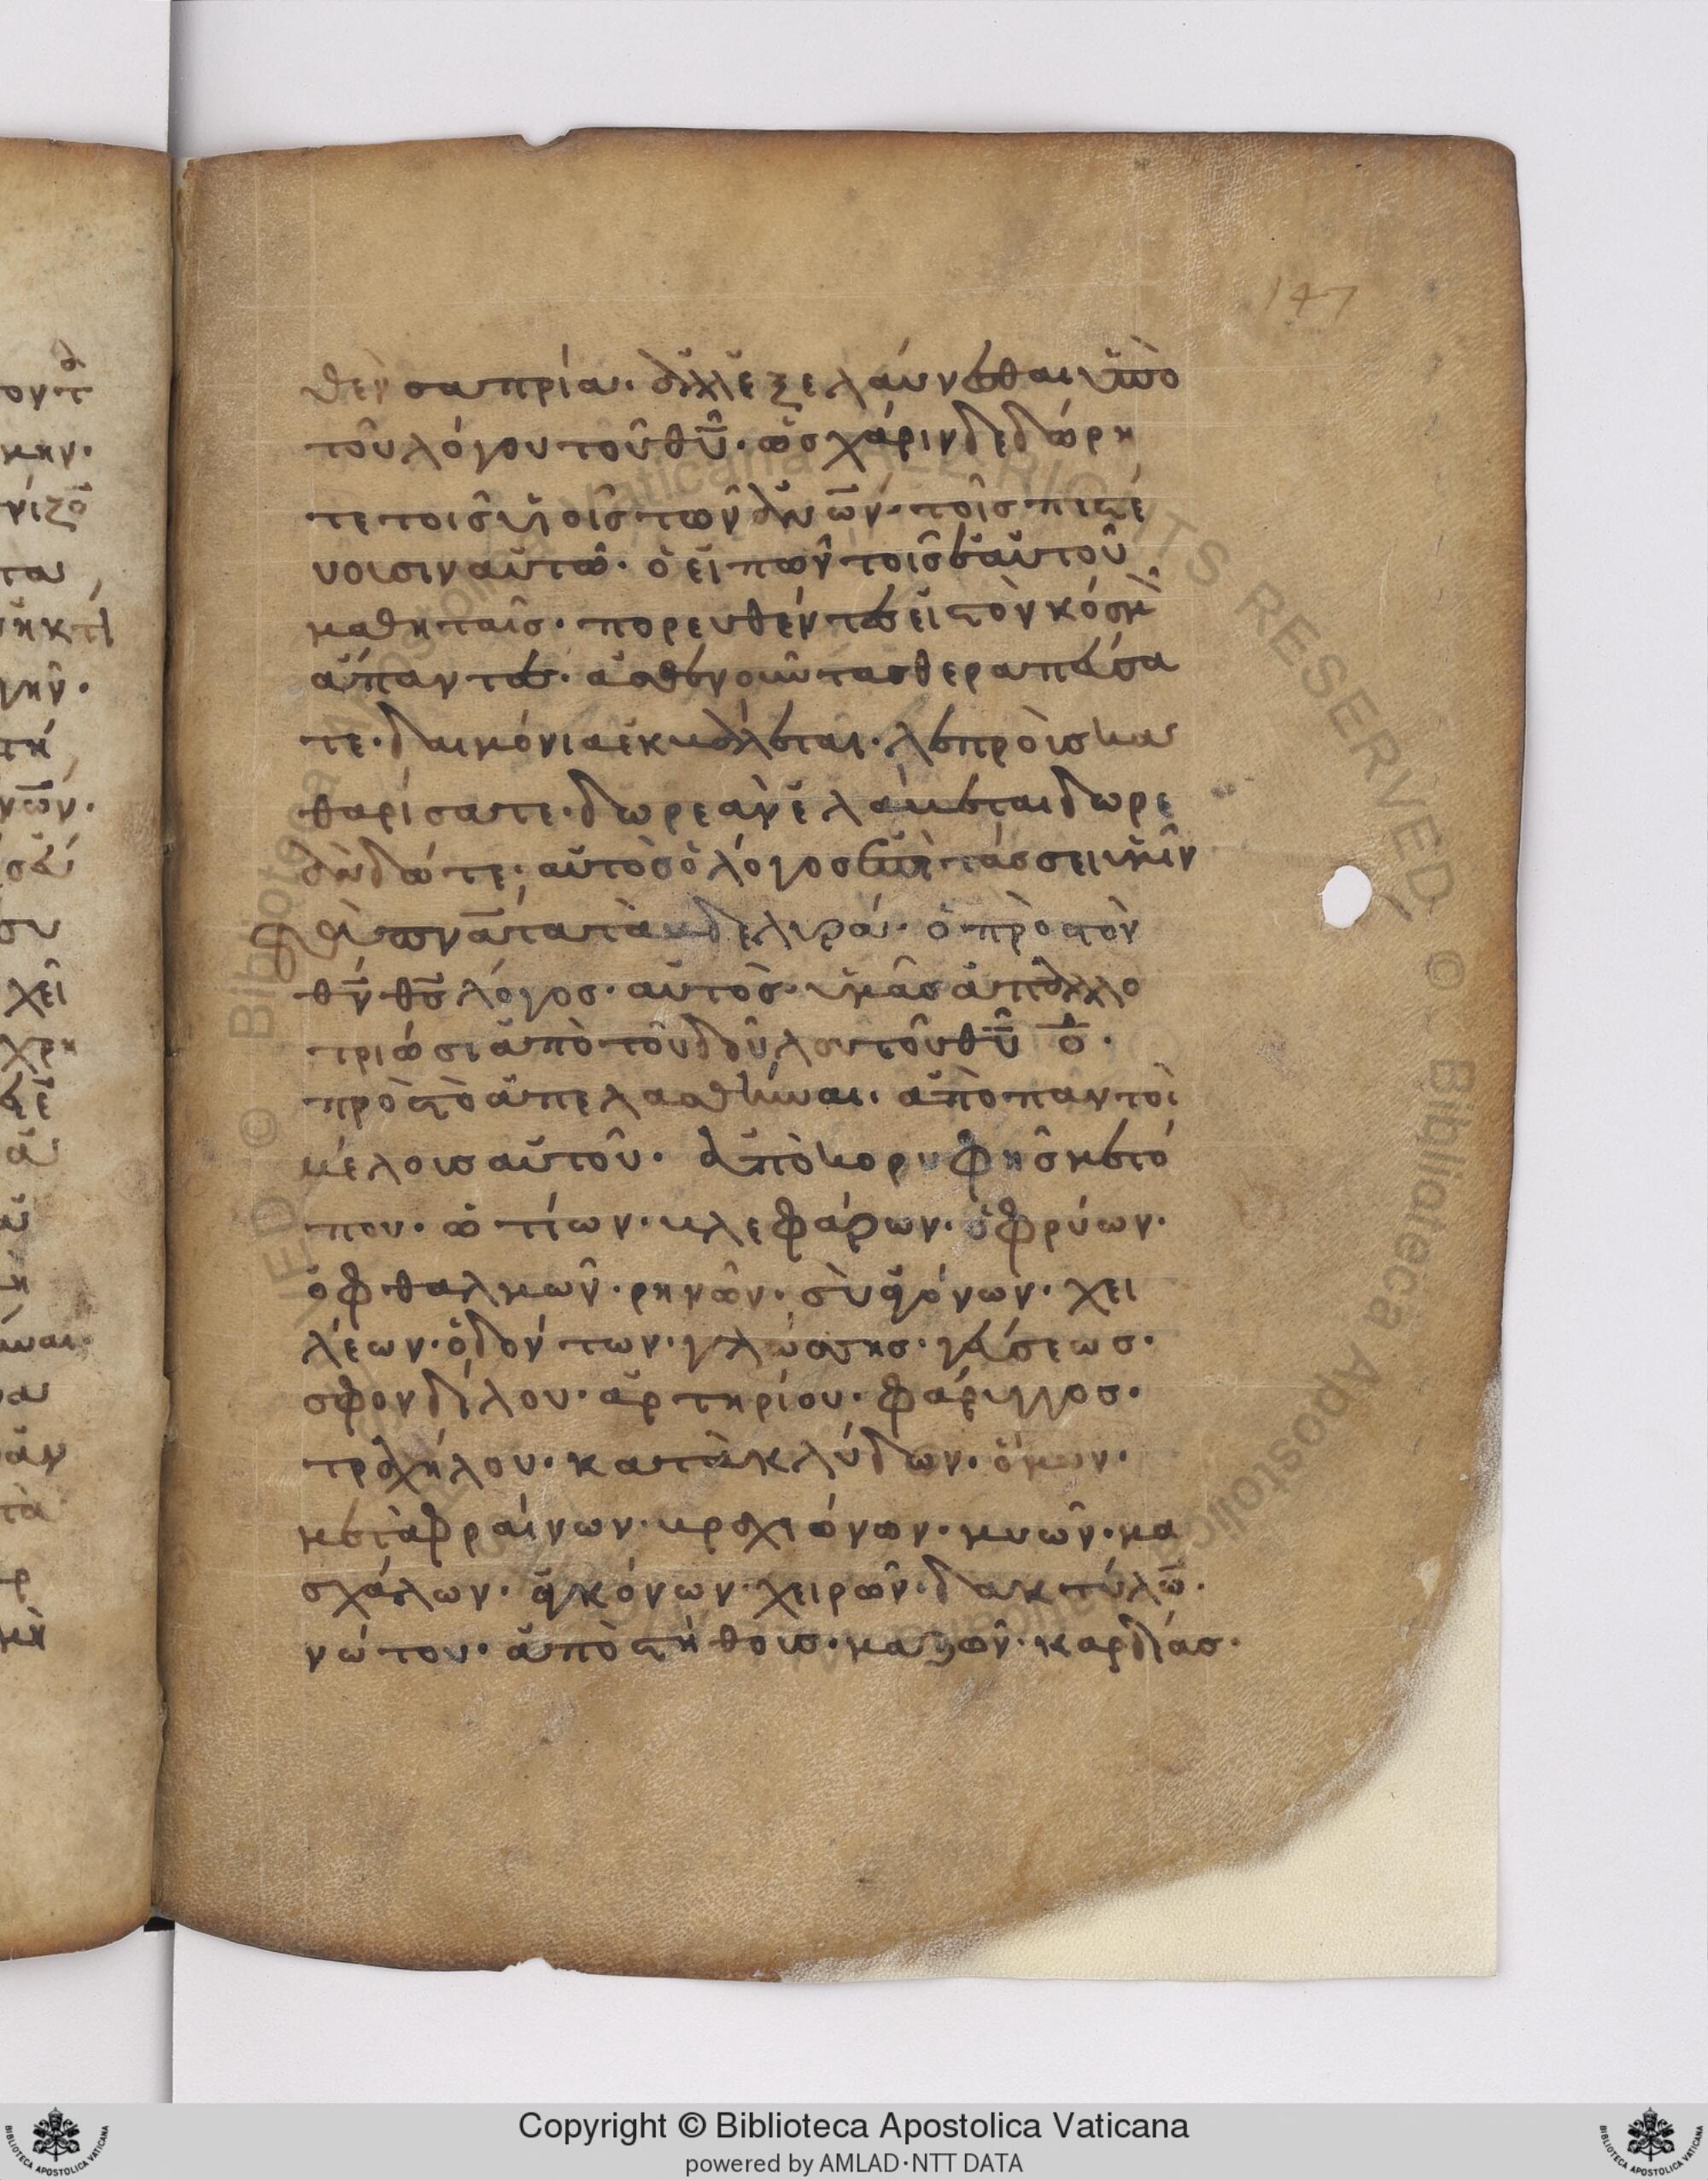 147
θεν σαπρία· ἀλλ' ἐξελάυνεσθαι ὑπὸ
τοῦ λόγου τοῦ θῦ· ὡσ χάριν δεδώρη
τε τοισ υἱοῖσ τῶν ἀνων· τοῖσ πιστέ
υουσιν αὐτῶ· ὁ εἰπῶν τοισ ἑαυτοῦ
μαθηταῖσ· πορευθέντεσ εἰσ τὸν κόσμὸ
ἅπαντα· ἀσθένουντασ θεραπέυσα
τε· δαιμόνια ἐκβάλεται· λεπροὺσ κα
θαρίσατε· δωρεὰν ἐλάβεται δωρε
ὰν δώτε· αὐτὸσ ὁ λόγοσ ἐπιτάσσει ὑμῖν
πνατα τὰ βδελυρά· ὁ πρὸσ τὸν
θν θσ λόγοσ· αὐτὸσ· ὑμᾶσ ἀπαλλο
τριώσι ἀπὸ τοῦ δούλου τοῦ θῦ ὁ δ·
πρὸσ τὸ ἀπελασθῆναι· ἀπὸ παντοὶ
μέλουσ αὐτοῦ· ἀπὸ κορυφῆσ μετό
που· ὠτίων· βλεφάρων· ὀφρύων·
ὀφθαλμῶν· ρηνῶν· σὺαγόνων· χει
λέων· ὀδόντων· γλώσσησ· γέυσεωσ·
σφονδίλου· ἀρτηρίου· φάρυγγοσ·
τραχήλου· κατὰκλύδων· ὄμων·
μεταφραίνων· βραχιόνων· μυῶν· μα
σχάλων· ἀγκόνων· χειρῶν· δακτύλω·
νώτου· ἀπὸ στήθουσ· μαζῶν· καρδίασ·
Copyright © Biblioteca Apostolica Vaticana
powered by AMLAD·NTT DATA